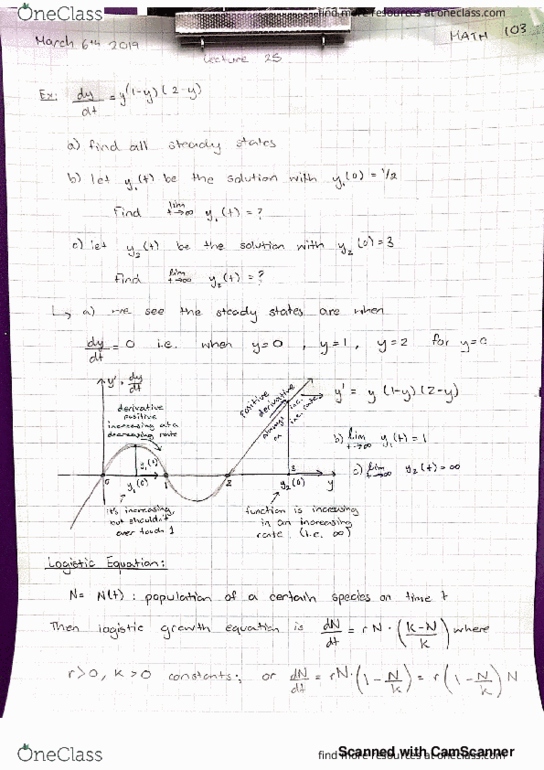 OneClass
find more resources at oneclass.com
March 6th 2019
MATH 103
Lecture 25
Ex: dy/dt = y(1-y)(2-y)
a) find all steady states
b) let y₁(t) be the solution with y₁(0) = 1/2
Find lim t→∞ y₁(t) = ?
c) let y₂(t) be the solution with y₂(0) = 3
Find lim t→∞ y₂(t) = ?
↳ a) we see the steady states are when
dy/dt = 0 i.e. when y=0, y=1, y=2 for
y', dy/dt
derivative
positive
increasing at a
decreasing rate
positive derivative
always
y' = y(1-y)(2-y)
b) lim t→∞ y₁(t) = 1
c) lim t→∞ y₂(t) = ∞
0
y₁(0)
1
2
3
y₂(0)
y
it's increasing,
but shouldn't
over touch 1
function is increasing
in an increasing
rate (i.e. ∞)
Logistic Equation:
N = N(t) : population of a certain species on time t
Then logistic growth equation is dN/dt = rN·(K-N/K) where
r>0, K>0 constants, or dN/dt = rN·(1-N/K) = r(1-N/K)N
OneClass
find more resources at oneclass.com
Scanned with CamScanner